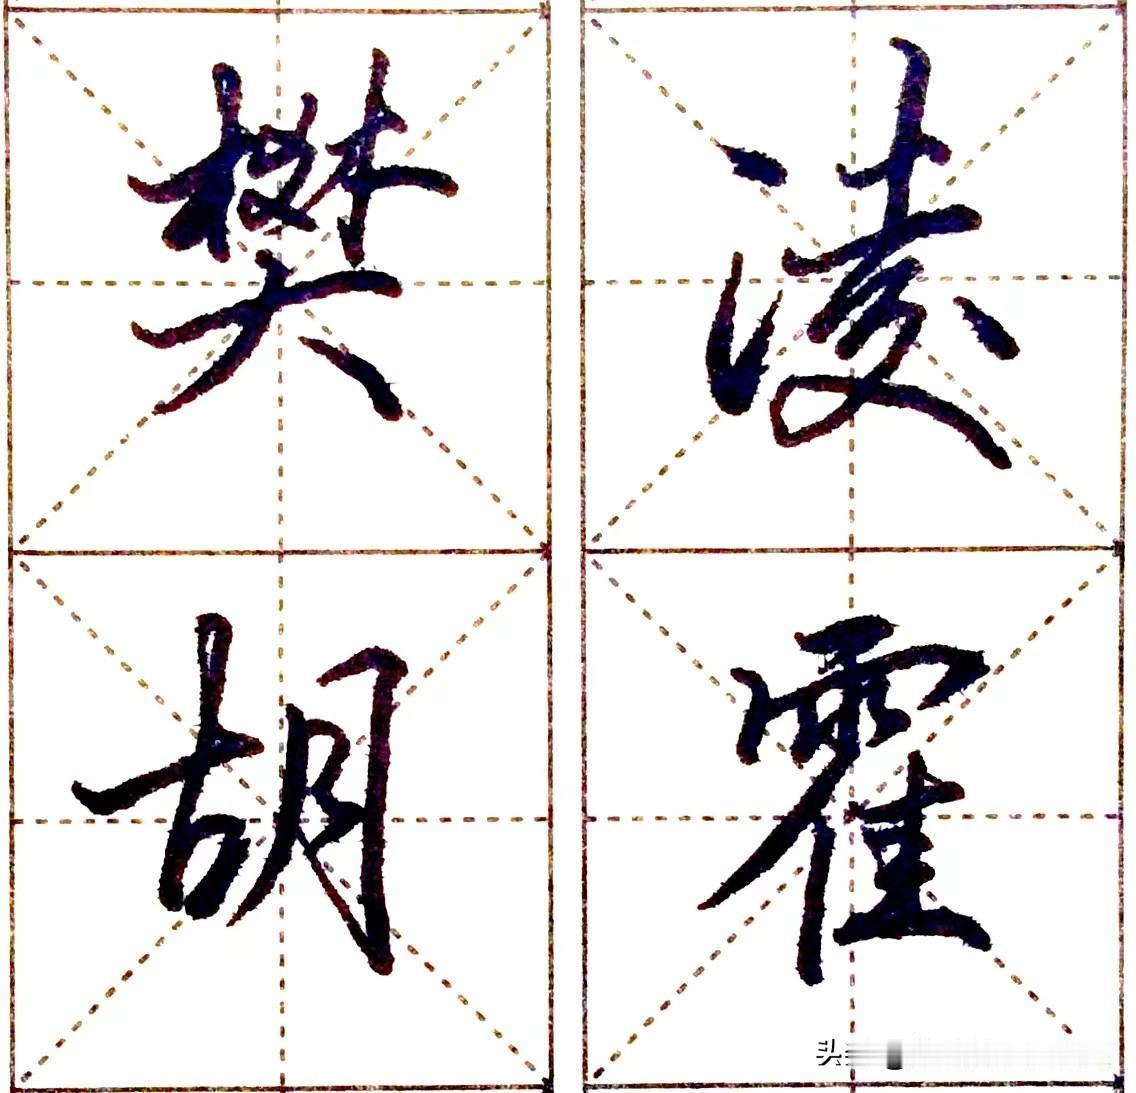 樊胡
凌霍
头